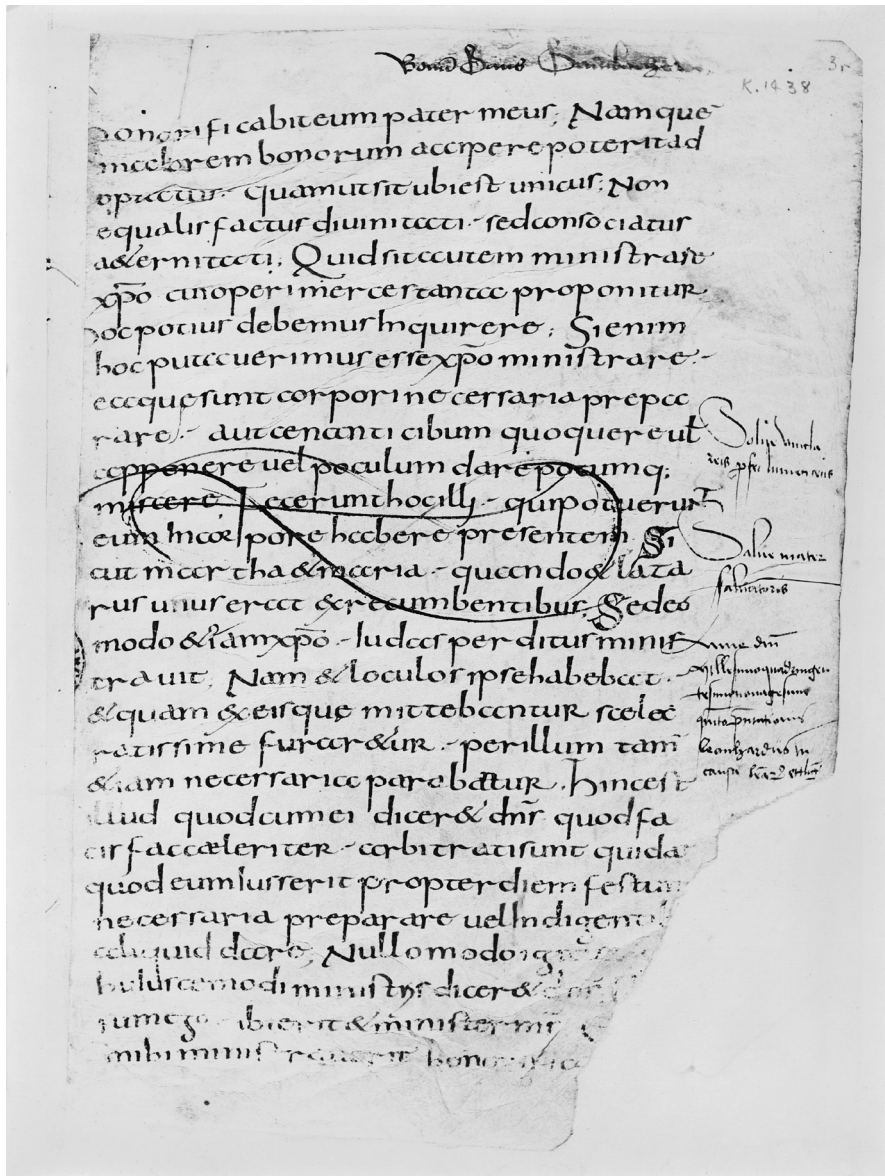 3r
K. 1438
honorificabit eum pater meus; Nam que
maiorem honorem accipere poterit ad
optatus. quam ut sit ubi est unicus; Non
equalis factus diuinitati. sed consociatus
a&ernitati; Quid sit autem ministrare
xpo cui operi merces tanta proponitur
hoc potius debemus Inquirere; Si enim
hoc putauerimus esse xpo ministrare.
ea que sunt corpori necessaria prepa
rare. aut cenanti cibum quoquere ul
apponere uel poculum dare pocumq;
miscere Fecerunt hoc illi. qui potuerunt
eum In corpore habere presentem. Si
cut martha & maria. quando & laza
rus unus erat & recumbentibus; Sed eo
modo & iam xpo. Iudas perditus minis
trauit; Nam & loculos ipse habebat.
& quam & eis que mittebantur scelec
ratissime furar&ur. per illum tam
&iam necessaria parabatur. hinc est
illud quod cum ei dicer& dns quod fa
cis fac caeleriter. arbitrati sunt quida
quod eum Iusserit propter diem festum
necessaria preparare uel Indigenti
aliquid dare; Nullo modo ig
huiuscemodi ministris dicer&
sum ego ibi erit & minister ms
mihi ministrauerit honorifica
Salue mater
saluatoris
Anno dni